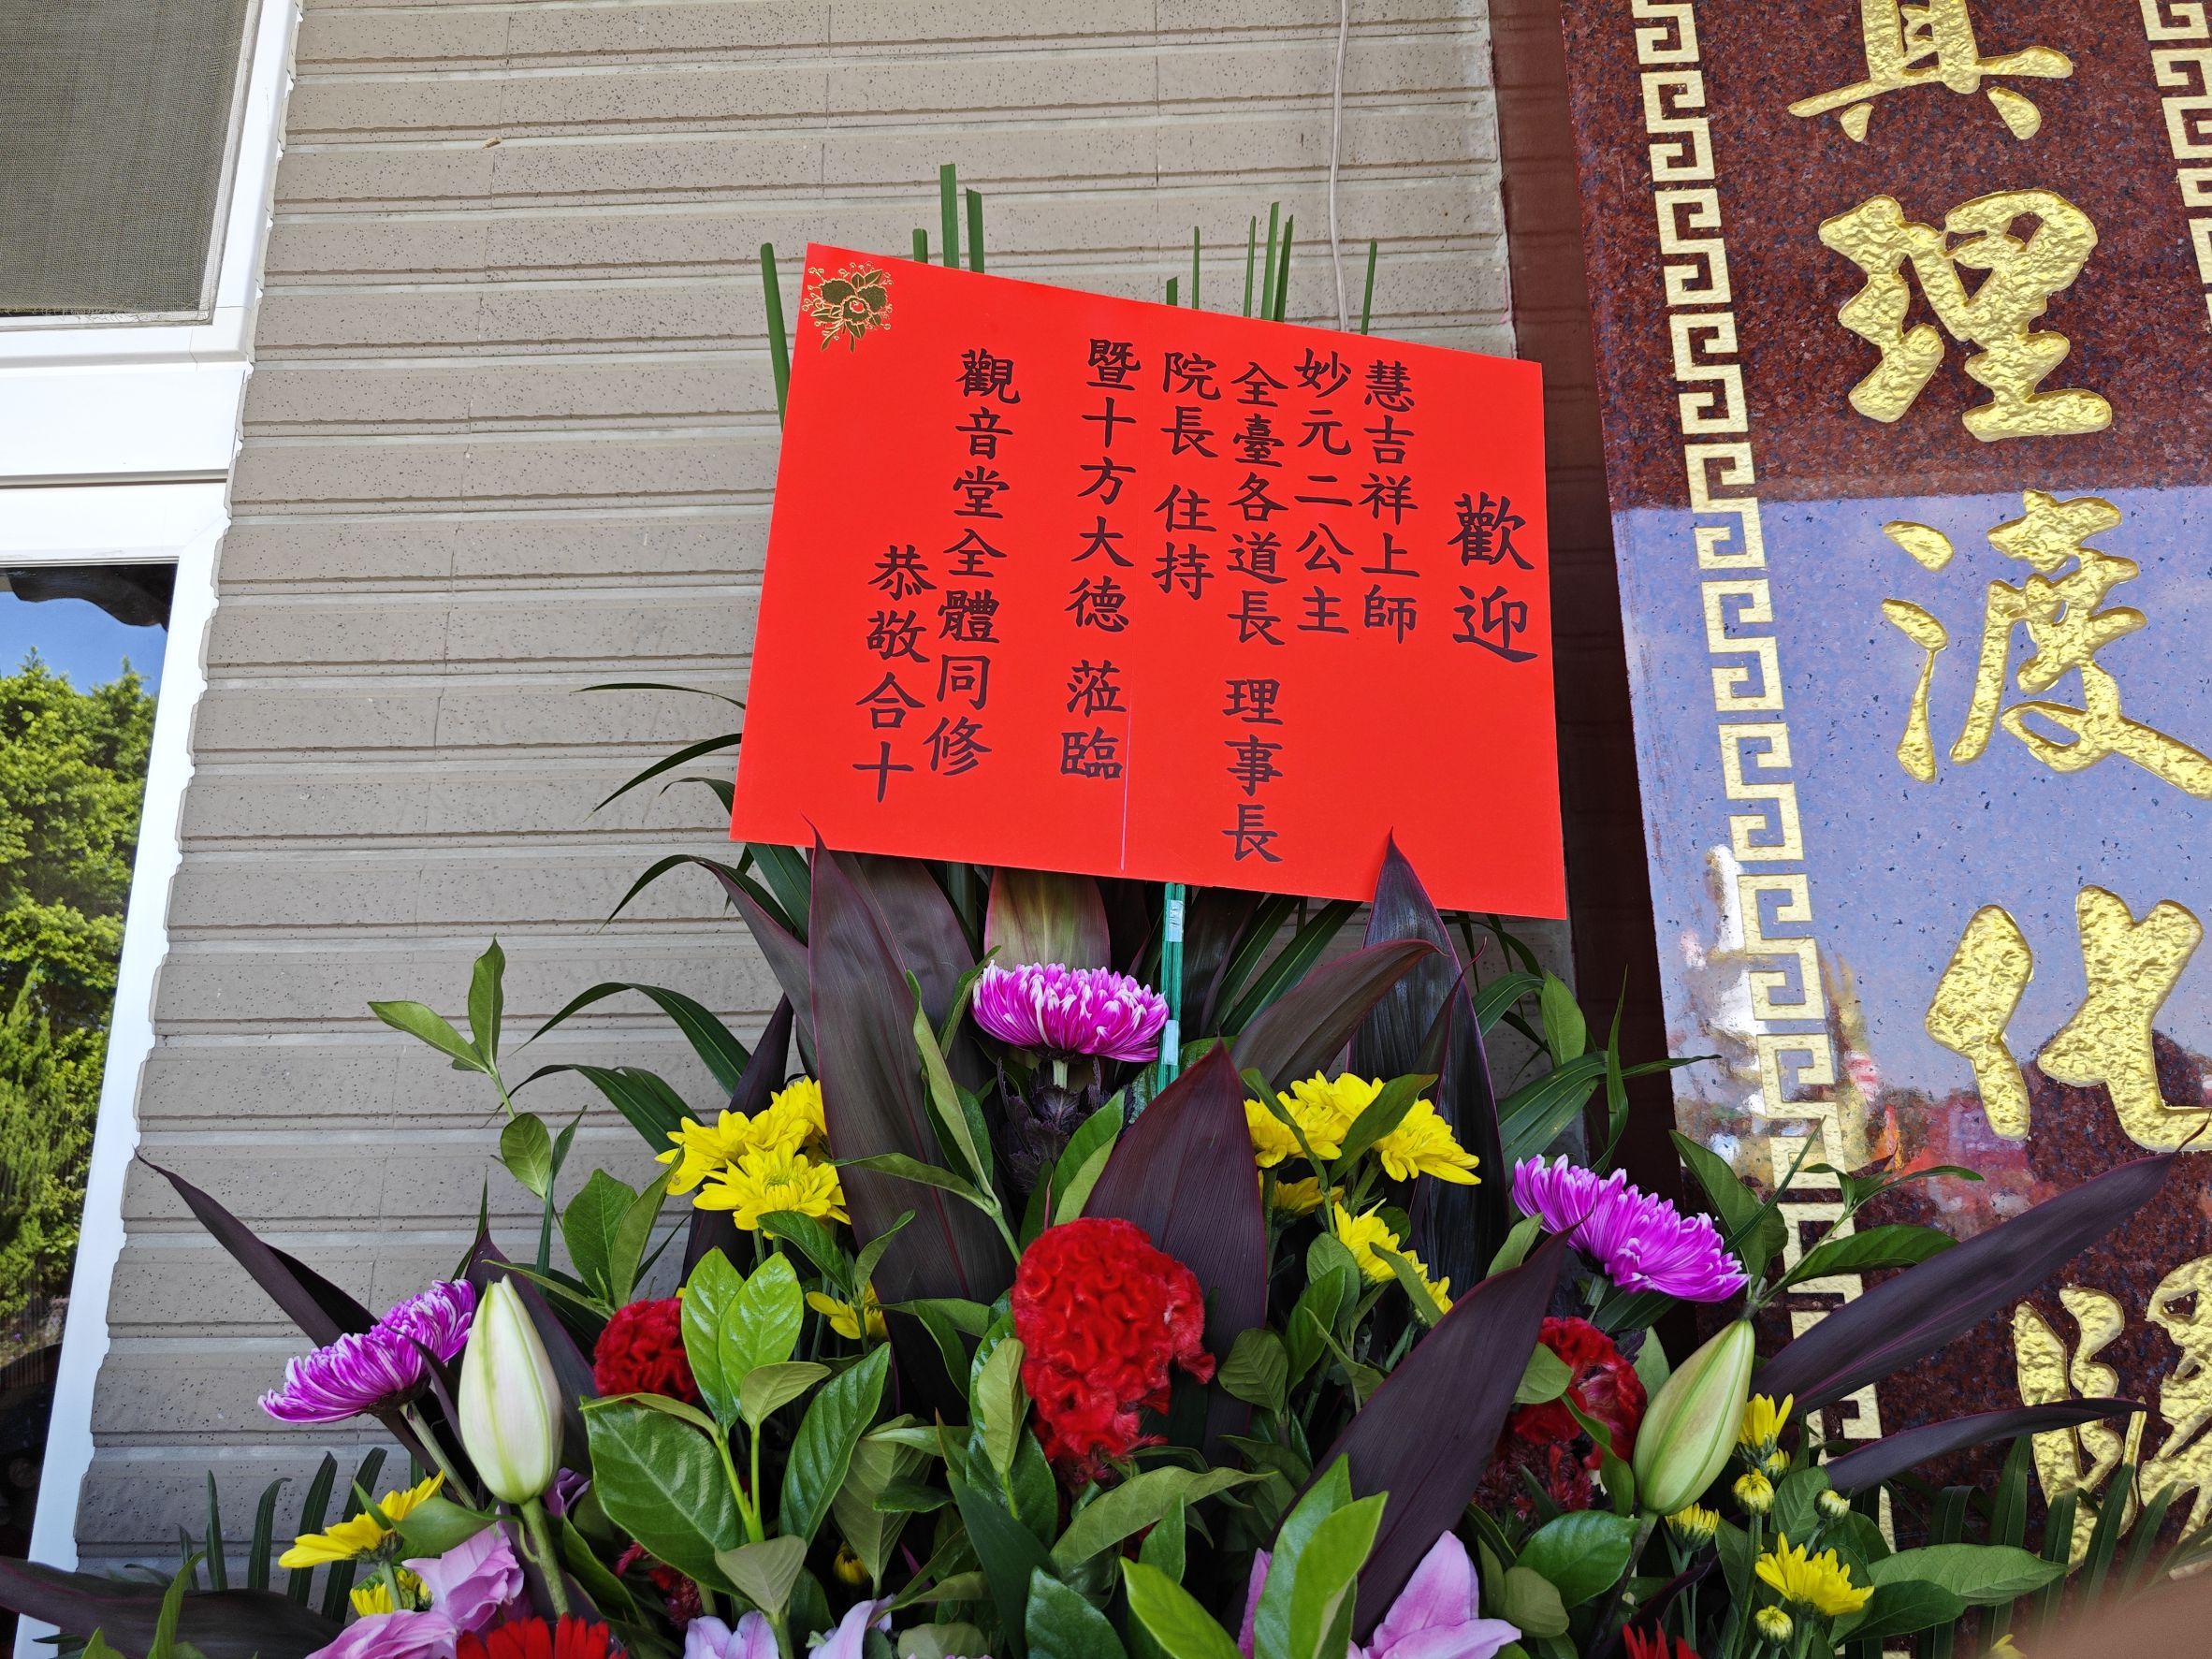 真理渡化
歡迎
慧吉祥上師
妙元二公主
全臺各道長 理事長
院長 住持
暨十方大德 蒞臨
觀音堂全體同修
恭敬合十